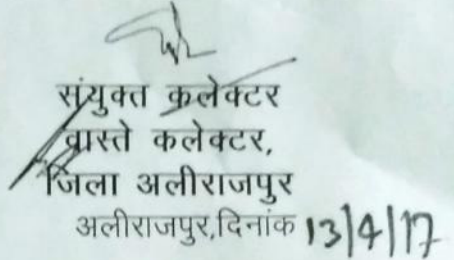 संयुक्त कलेक्टर
वास्ते कलेक्टर,
जिला अलीराजपुर
अलीराजपुर,दिनांक 13/4/17